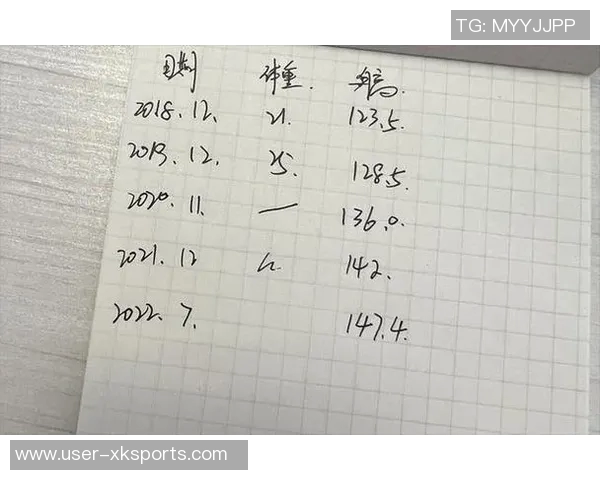 TG: MYYJJPP
日期 体重. 身高
2018.12. 21. 123.5.
2019.12. 25. 128.5.
2020.11. — 136.0.
2021.12 142.
2022.7. 147.4.
www.user-xksports.com